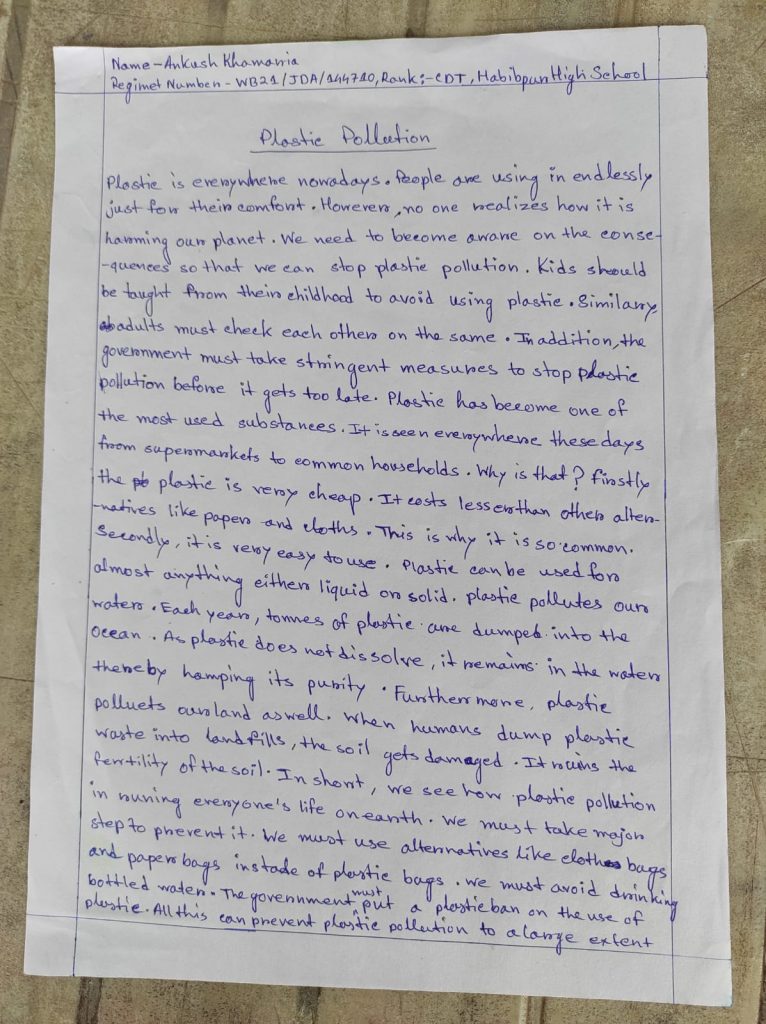 Name - Ankush Khamaria
Regimet Number - WB21/JDA/144710, Rank:- CDT, Habibpur High School
Plastic Pollution
Plastic is everywhere nowadays. People are using in endlessly
just for their comfort. However, no one realizes how it is
harming our planet. We need to become aware on the conse-
-quences so that we can stop plastic pollution. Kids should
be taught from their childhood to avoid using plastic. Similary,
adults must check each other on the same. In addition, the
government must take stringent measures to stop plastic
pollution before it gets too late. Plastic has become one of
the most used substances. It is seen everywhere these days
from supermarkets to common households. Why is that? firstly
the plastic is very cheap. It costs lesser than other alter-
-natives like paper and cloths. This is why it is so common.
Secondly, it is very easy to use. Plastic can be used for
almost anything either liquid or solid. plastic pollutes our
water. Each year, tonnes of plastic are dumped into the
Ocean. As plastic does not dissolve, it remains in the water
thereby hamping its purity. Furthermore, plastic
polluets our land as well. When humans dump plastic
waste into landfills, the soil gets damaged. It ruins the
fertility of the soil. In short, we see how plastic pollution
in runing everyone's life on earth. We must take major
step to prevent it. We must use alternatives like cloth bags
and paper bags instade of plastic bags. we must avoid drinking
bottled water. The government must put a plastic ban on the use of
plastic. All this can prevent plastic pollution to a large extent